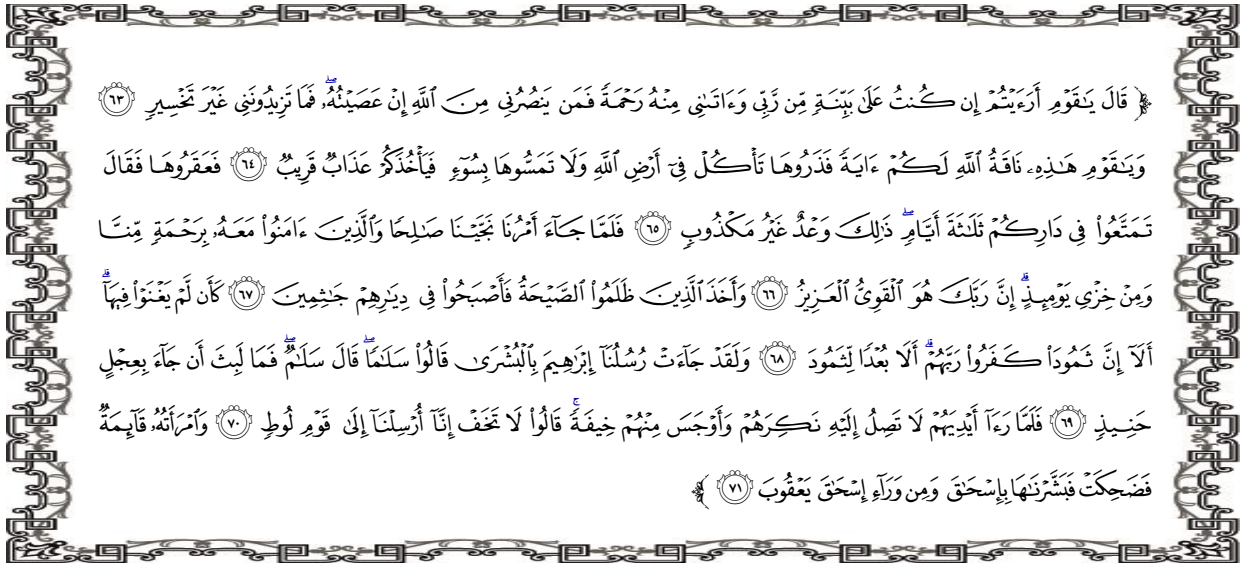 ﴿ قَالَ يَـٰقَوْمِ أَرَءَيْتُمْ إِن كُنتُ عَلَىٰ بَيِّنَةٍ مِّن رَّبِّى وَءَاتَىٰنِى مِنْهُ رَحْمَةً فَمَن يَنصُرُنِى مِنَ ٱللَّهِ إِنْ عَصَيْتُهُۥ ۖ فَمَا تَزِيدُونَنِى غَيْرَ تَخْسِيرٍ ﴿٦٣﴾
وَيَـٰقَوْمِ هَـٰذِهِۦ نَاقَةُ ٱللَّهِ لَكُمْ ءَايَةً فَذَرُوهَا تَأْكُلْ فِىٓ أَرْضِ ٱللَّهِ وَلَا تَمَسُّوهَا بِسُوٓءٍ فَيَأْخُذَكُمْ عَذَابٌ قَرِيبٌ ﴿٦٤﴾ فَعَقَرُوهَا فَقَالَ
تَمَتَّعُوا۟ فِى دَارِكُمْ ثَلَـٰثَةَ أَيَّامٍ ۖ ذَٰلِكَ وَعْدٌ غَيْرُ مَكْذُوبٍ ﴿٦٥﴾ فَلَمَّا جَآءَ أَمْرُنَا نَجَّيْنَا صَـٰلِحًا وَٱلَّذِينَ ءَامَنُوا۟ مَعَهُۥ بِرَحْمَةٍ مِّنَّا
وَمِنْ خِزْىِ يَوْمِئِذٍ ۗ إِنَّ رَبَّكَ هُوَ ٱلْقَوِىُّ ٱلْعَزِيزُ ﴿٦٦﴾ وَأَخَذَ ٱلَّذِينَ ظَلَمُوا۟ ٱلصَّيْحَةُ فَأَصْبَحُوا۟ فِى دِيَـٰرِهِمْ جَـٰثِمِينَ ﴿٦٧﴾ كَأَن لَّمْ يَغْنَوْا۟ فِيهَآ ۗ
أَلَآ إِنَّ ثَمُودَا۟ كَفَرُوا۟ رَبَّهُمْ ۗ أَلَا بُعْدًا لِّثَمُودَ ﴿٦٨﴾ وَلَقَدْ جَآءَتْ رُسُلُنَآ إِبْرَٰهِيمَ بِٱلْبُشْرَىٰ قَالُوا۟ سَلَـٰمًا ۖ قَالَ سَلَـٰمٌ ۖ فَمَا لَبِثَ أَن جَآءَ بِعِجْلٍ
حَنِيذٍ ﴿٦٩﴾ فَلَمَّا رَءَآ أَيْدِيَهُمْ لَا تَصِلُ إِلَيْهِ نَكِرَهُمْ وَأَوْجَسَ مِنْهُمْ خِيفَةً ۚ قَالُوا۟ لَا تَخَفْ إِنَّآ أُرْسِلْنَآ إِلَىٰ قَوْمِ لُوطٍ ﴿٧٠﴾ وَٱمْرَأَتُهُۥ قَآئِمَةٌ
فَضَحِكَتْ فَبَشَّرْنَـٰهَا بِإِسْحَـٰقَ وَمِن وَرَآءِ إِسْحَـٰقَ يَعْقُوبَ ﴿٧١﴾ ﴾